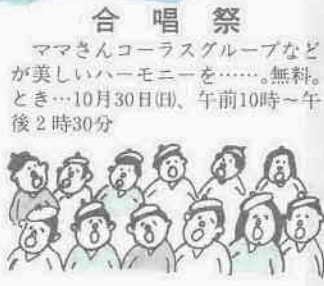 合唱祭
ママさんコーラスグループなど
が美しいハーモニーを……。無料。
とき…10月30日㈰、午前10時～午
後２時30分